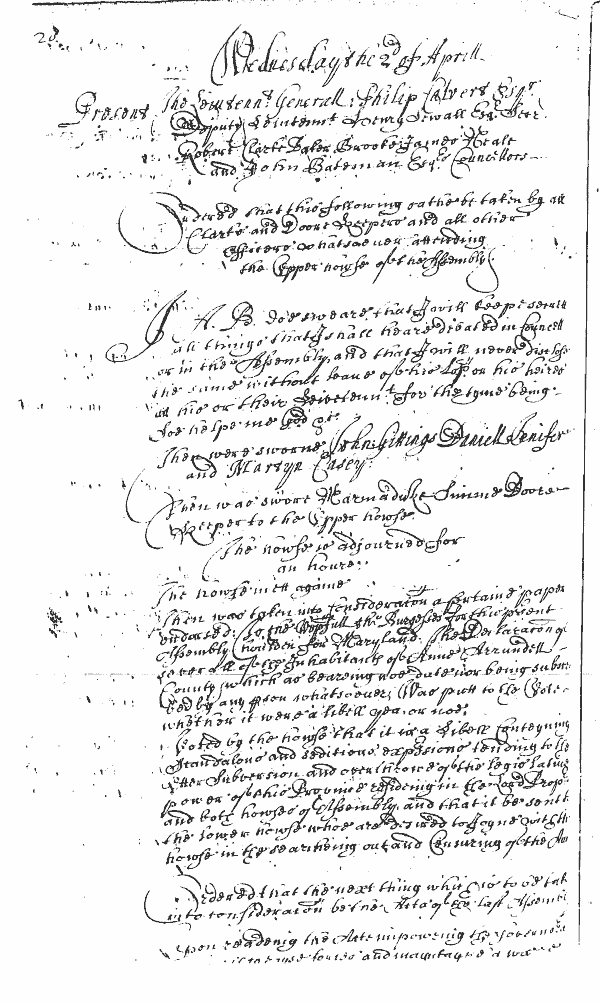 Wednesday the 2d of Aprill
Present The Leiutennt Generall, Philip Calvert Esqr
Deputy Leiutennt Henry Sewall Esqr Secr
Robert Clarke Baker Brooke James Neale
and John Bateman Esqrs Councillors
Ordered that this following oathe be taken by all
Clarks and Doore Keepers and all other
Officers whatsoever attending
the Upper howse of the Assembly
I A. B. doe sweare that I will keepe secrett
all things that I shall heare debated in Councell
or in the Assembly, and that I will never disclose
the same without leave of his Lopp or his heires
or his or their Leivetennt for the tyme being
Soe helpe me God &c
Then were sworne John Gittings Daniell Jenifer
and Martyn Casey
Then was sworne Marmaduke Simme Doore
Keeper to the Upper howse
The howse is adjourned for
an houre
The howse mett againe
Then was taken into consideracon a certaine paper
endorced: To the Worpfull the Burgesses for this present
Assembly (written for Maryland. The Declaracon of
severall of the Inhabitants of Anne Arrundell
County) which as bearing noe date nor being subscri
bed by any pson whatsoever; Was putt to the Vote
whether it were a libell yea, or noe:
Voted by the howse that it is a Libell Conteyning
Scandalous and seditious expressions tending to the
utter Subversion and overthrowe of the legislative
power of this Province residing in the Lord Propr
and both howses of Assembly, and that it be sent to
the lower howse whoe are desired to Joyne with this
howse in the searching out and Censuring of the Au
Ordered that the next thing which is to be tak
into consideracon be the Acts of the last Assemb
Upon reading the Acte impowering the Governor
and maintaine a warre